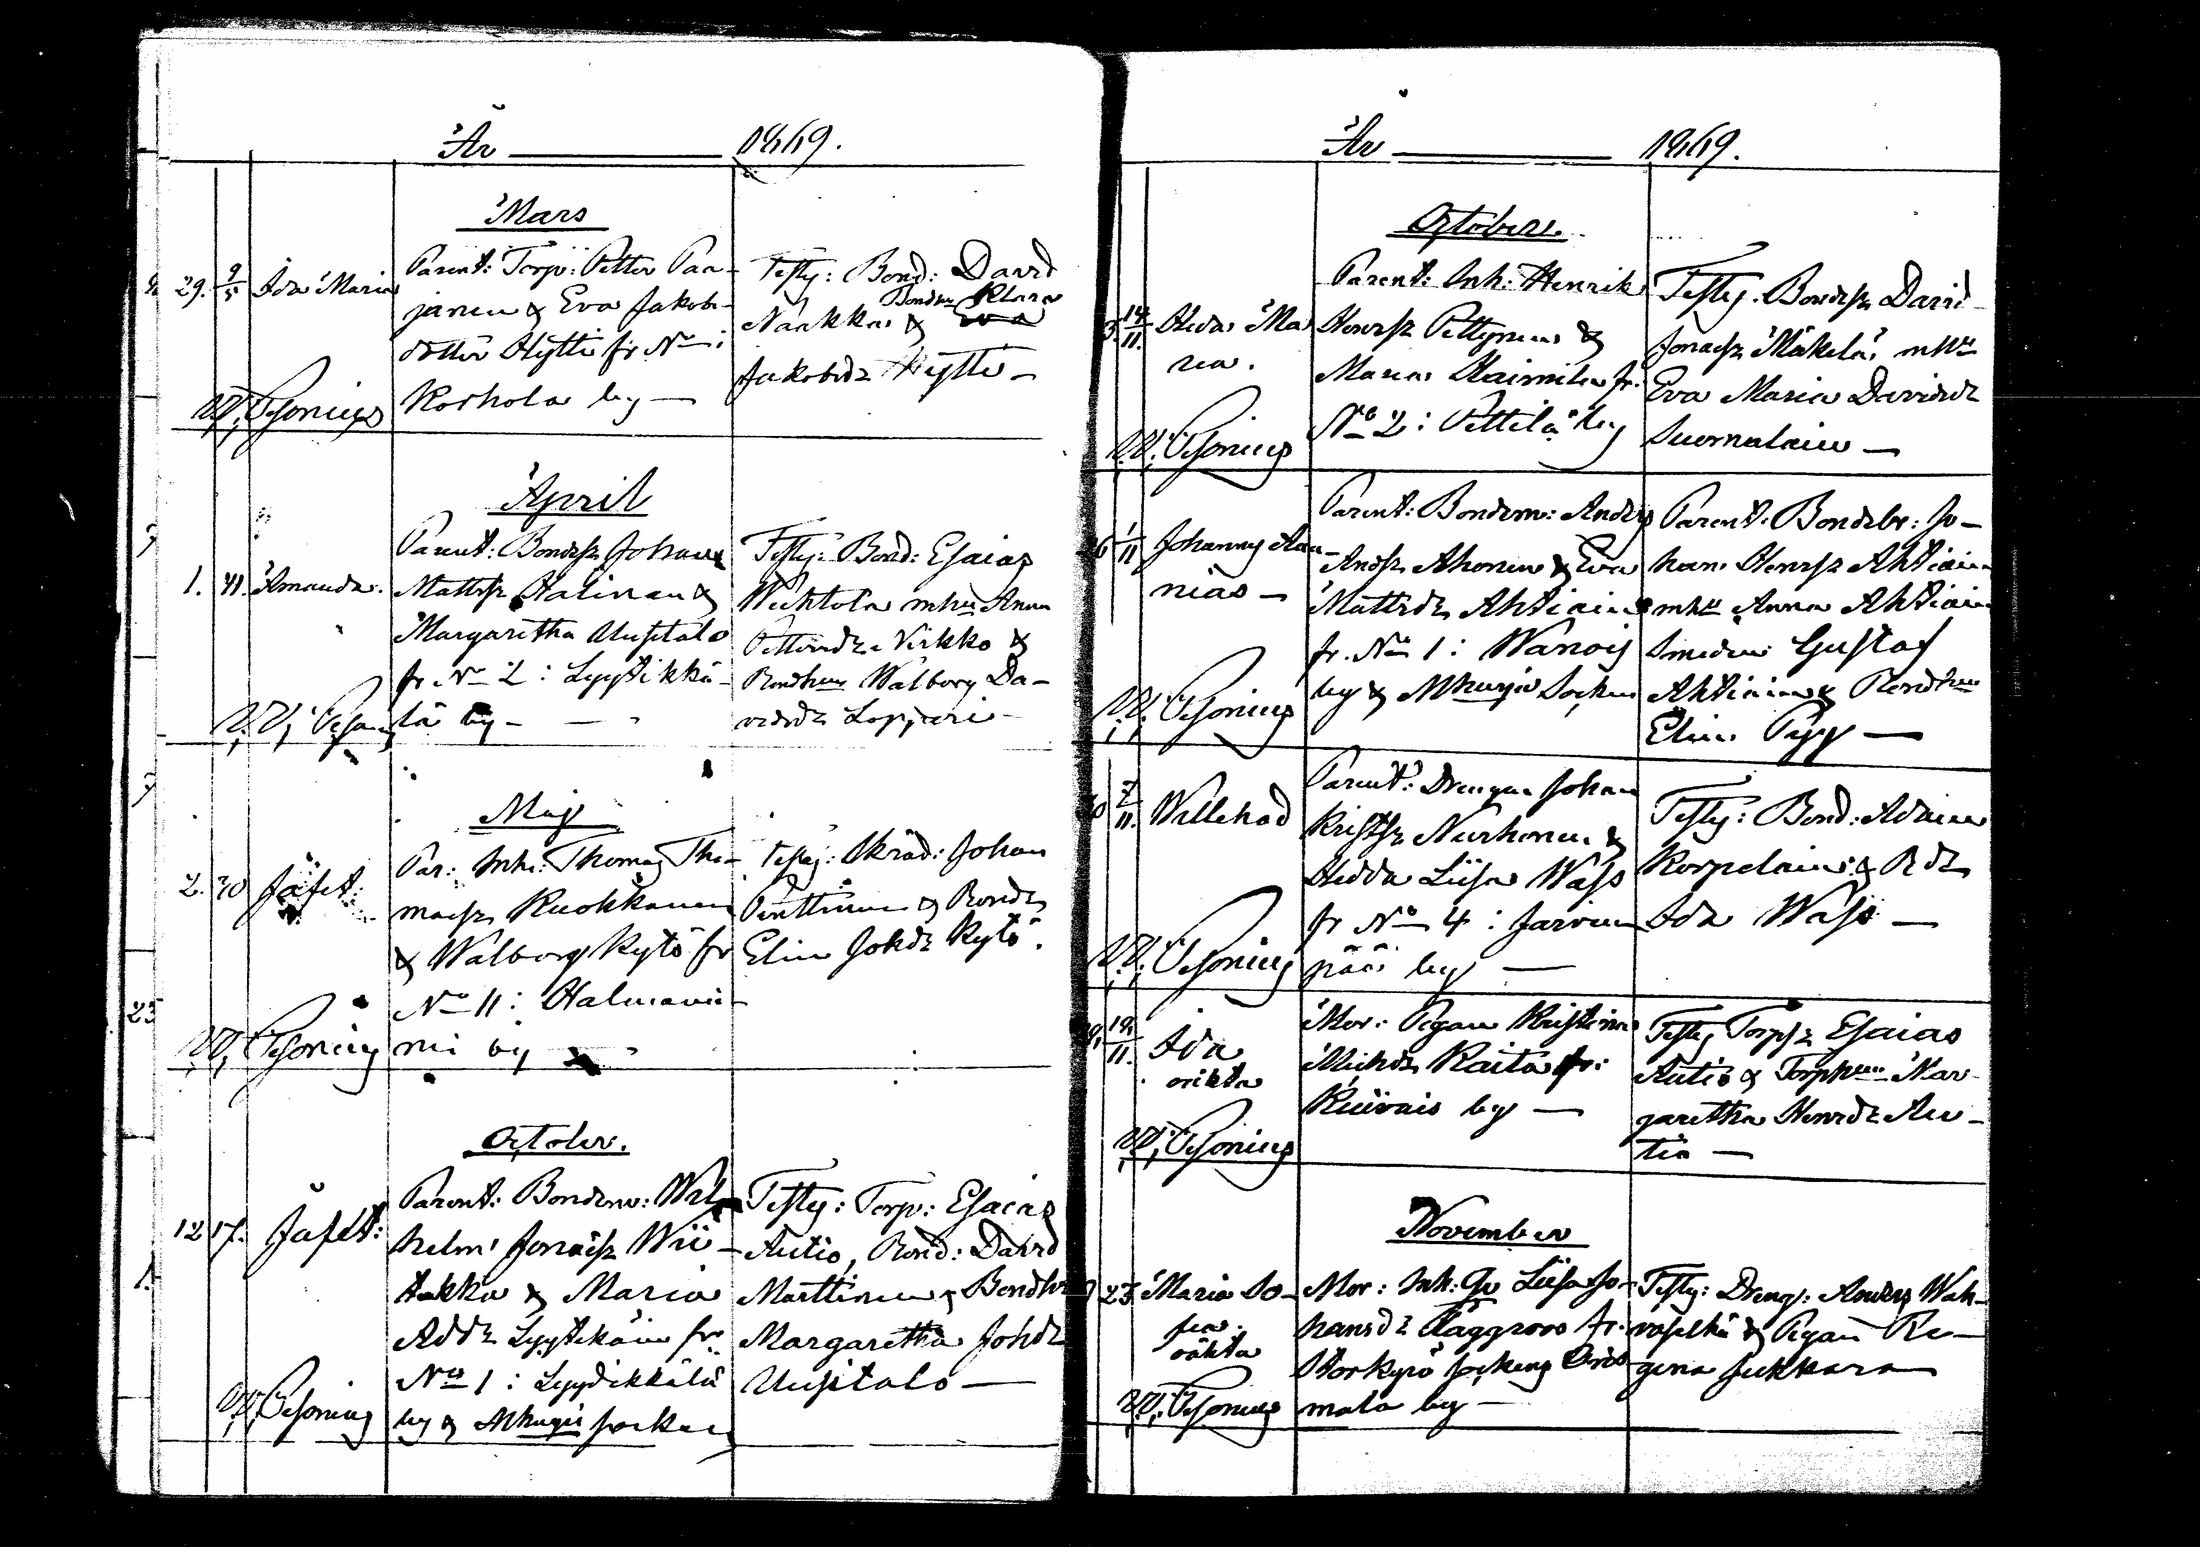 År 1869.
Mars
29. 9/5 Ida Maria
Parent: Torp: Petter Paa-
janen & Eva Jakobs-
dotter Hytti fr No i
Korhola by —
Testy: Bond: David
Bondhu Klara
Naakka & Eva
Jakobsdr Hytti —
April
1. 11. Amanda.
Parent: Bondesr Johan
Mattsr Halinen &
Margaretha Uusitalo
fr No 2: Lyytikkä-
lä by —
Testy: Bond: Esaias
Wehtola mhu Anna
Pettersdr Virkko &
Bondhun Walborg Da-
vidsdr Loppari —
Maj
2. 30 Jafet:
Par: Inh: Thomas Tho-
masr Kuokkanen
& Walborg Kytö fr
No 11: Halmanie-
mi by
Testy: Skräd: Johan
Penttinen & Bondr
Elin Johdr Kytö.
October.
12 17. Jafet:
Parent: Bondem: Wil-
helm Jonaesr Wii-
takka & Maria
Addr Lyytikäin fr.
No 1: Lyydikkälä
by & Alhugis socken
Testy: Torp: Esaias
Autio, Bond: David
Marttinen & Bondhu
Margaretha Johdr
Uusitalo —
År 1869.
October.
14/11. Heda Ma
ria.
Parent: Inh: Henrik
Henrsr Pettynen &
Maria Kaimila fr.
No 2: Pettilä by
Testy. Bondesr David
Jonaesr Mäkelä mhu
Eva Maria Davidsdr
Suomalain —
1/11 Johannes Ana-
nias —
Parent: Bondem: Anders
Andsr Ahonen & Eva
Mattsdr Ahtiain
fr. No 1: Wanois
by & Alhugis Socken
Parent: Bondebr: Jo-
han Henrsr Ahtiain
mhu Anna Ahtiain
Smeden Gustaf
Ahtiain & Bondhun
Elin Pyy —
7/11. Willehad
Parent: Drengen Johan
Kristsr Nurhonen &
Hedda Liisa Wass
fr No 4: Jarven
pää by —
Testy: Bond: Adam
Korpelain & Bdr
Ida Wass —
14/11. Ida
oäkta
Mor: Pigan Kristina
Michdr Raita fr:
Kuivais by —
Testy Torpsr Esaias
Autio & Torphun Mar-
garetha Henrdr Au-
tio —
November
23 Maria So-
fia.
oäkta
Mor: Inh: Qv Liisa Jo-
hansdr Haggroos fr.
Storkyro socken Oris-
mala by —
Testy: Dreng: Anders Wah-
vaselkä & Pigan Re-
gina Jukkara